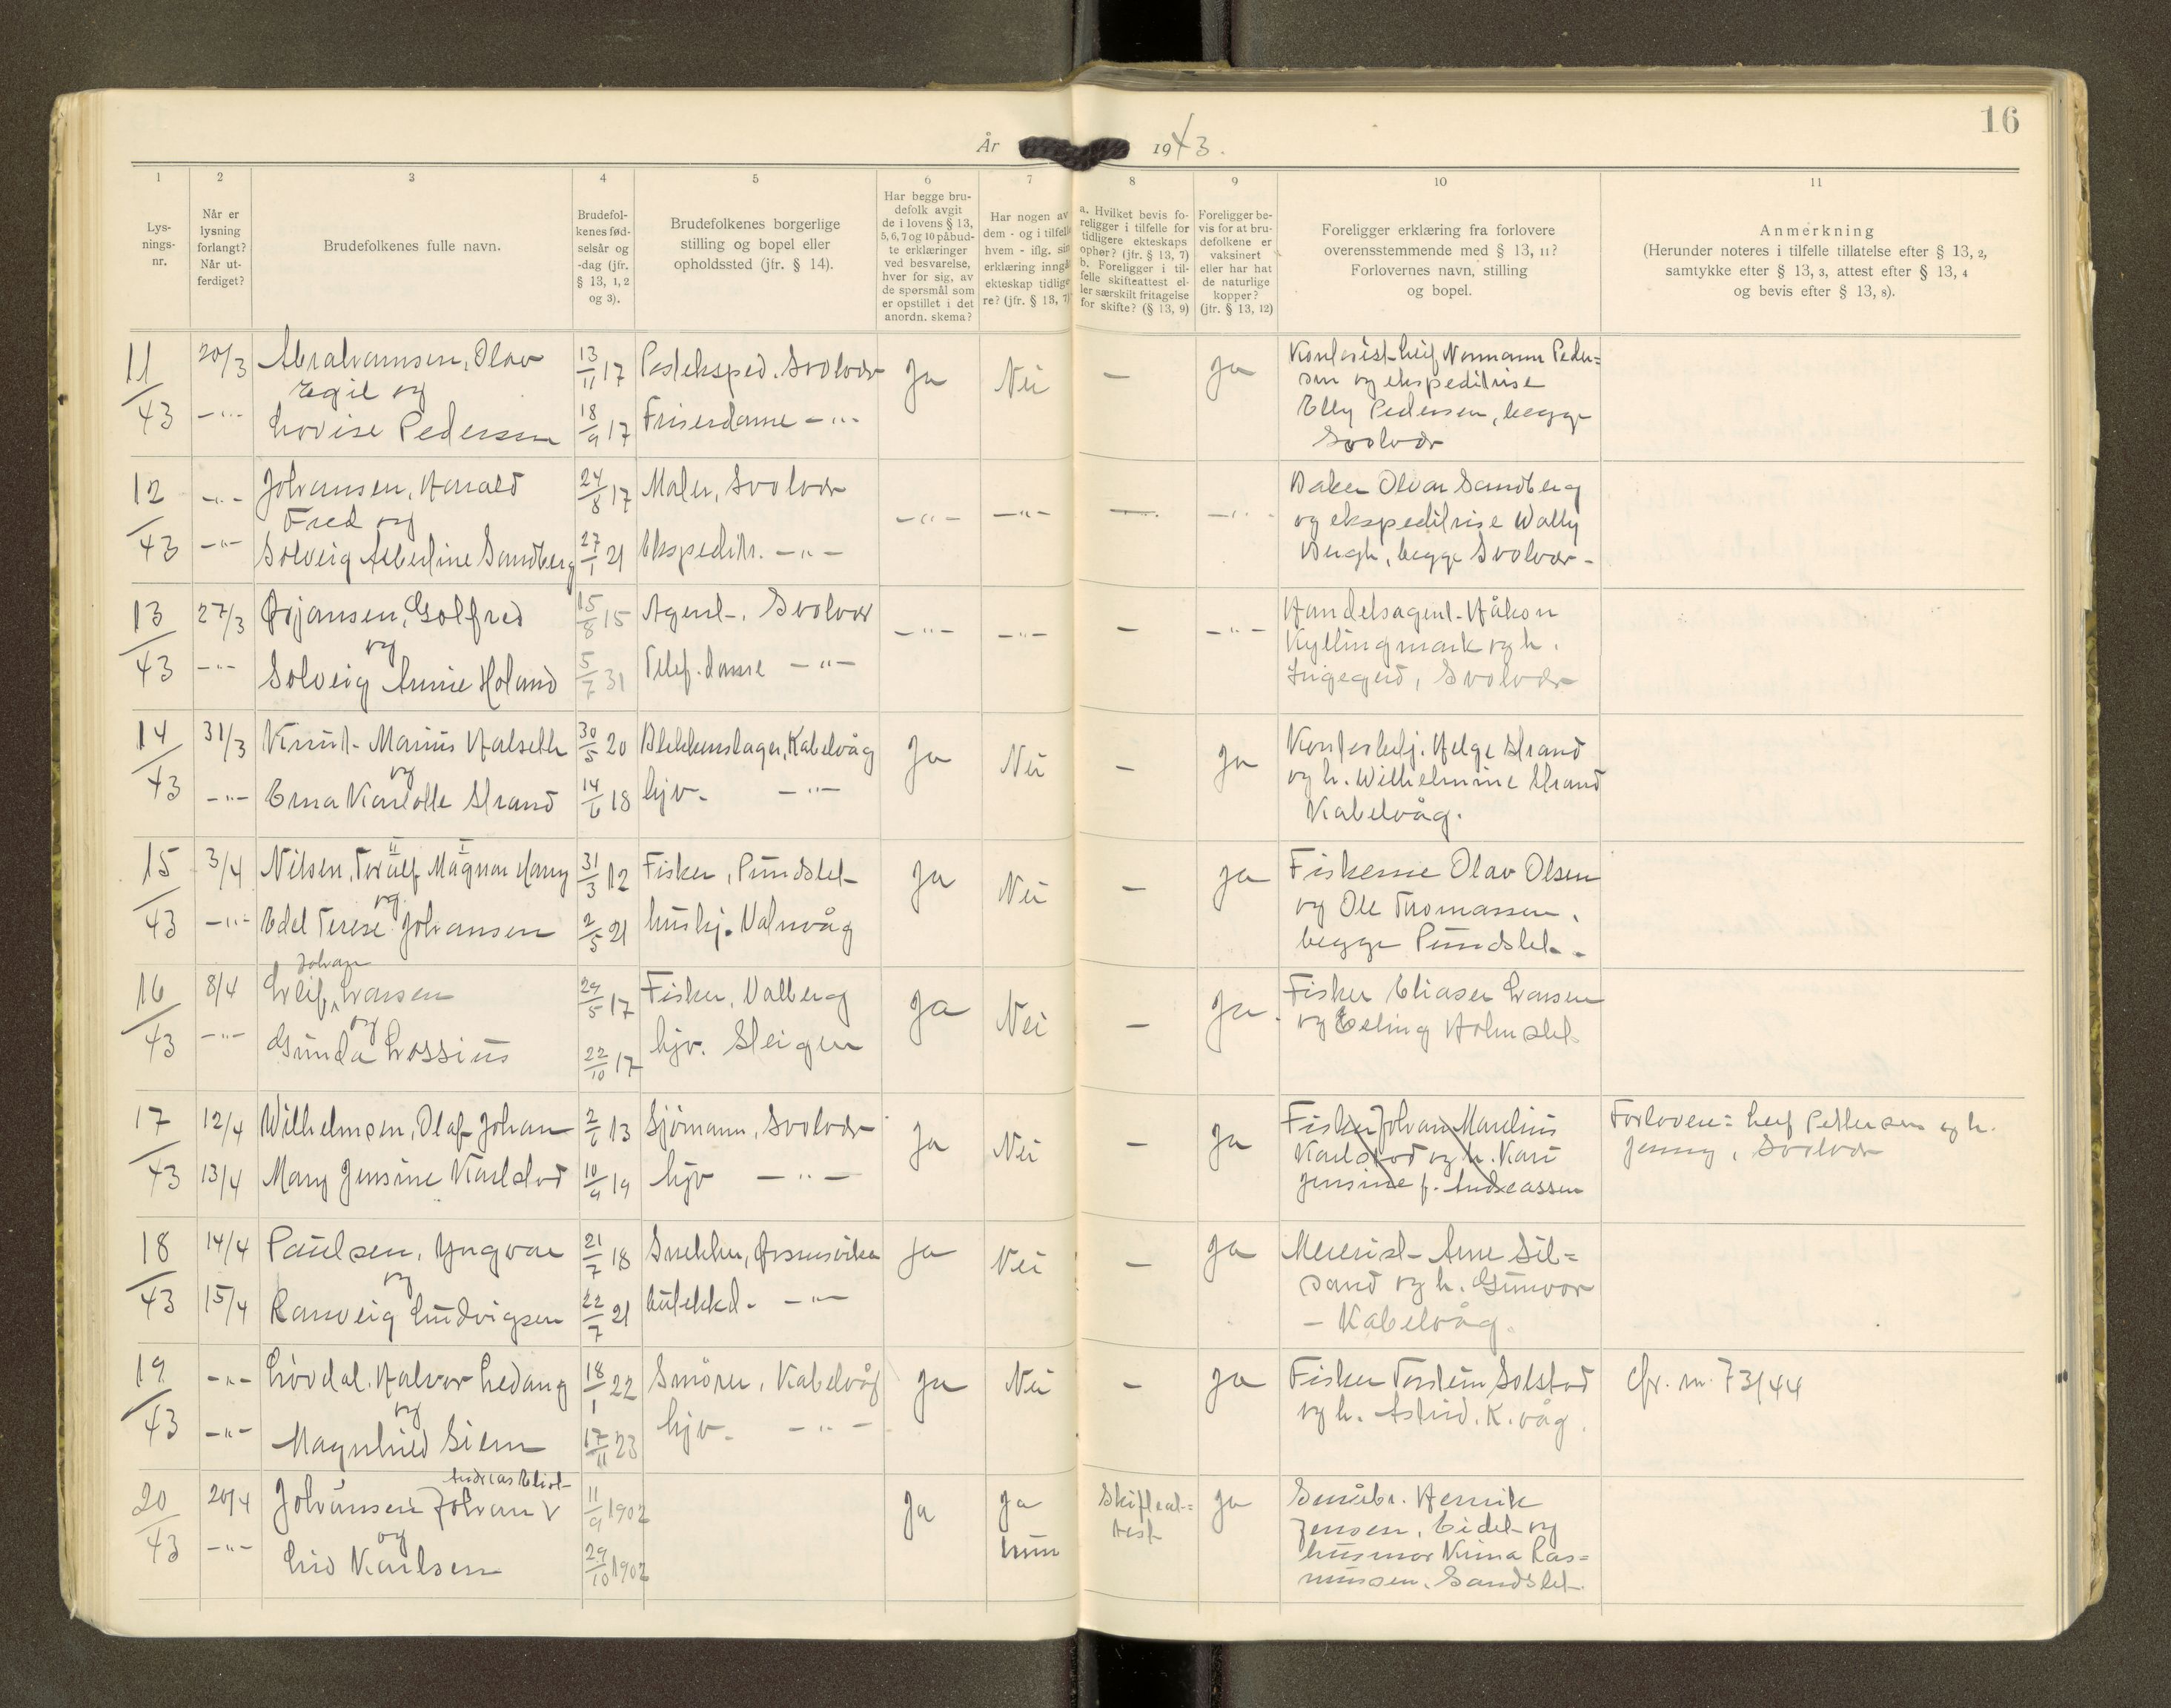 16
År 1943.
1 2 3 4 5 6 7 8 9 10 11
Lysnings-nr.
Når er lysning forlangt? Når utferdiget?
Brudefolkenes fulle navn.
Brudefolkenes fødselsår og -dag (jfr. § 13, 1, 2 og 3).
Brudefolkenes borgerlige stilling og bopel eller opholdssted (jfr. § 14).
Har begge brudefolk avgit de i lovens § 13, 5, 6, 7 og 10 påbudte erklæringer ved besvarelse, hver for sig, av de spørsmål som er opstillet i det anordn. skema?
Har nogen av dem - og i tilfelle hvem - iflg. sin erklæring inngå ekteskap tidligere? (jfr. § 13, 7)
a. Hvilket bevis foreligger i tilfelle for tidligere ekteskaps ophør? (jfr. § 13, 7) b. Foreligger i tilfelle skifteattest eller særskilt fritagelse for skifte? (§ 13, 9)
Foreligger bevis for at brudefolkene er vaksinert eller har hat de naturlige kopper? (jfr. § 13, 12)
Foreligger erklæring fra forlovere overensstemmende med § 13, 11? Forlovernes navn, stilling og bopel.
Anmerkning
(Herunder noteres i tilfelle tillatelse efter § 13, 2, samtykke efter § 13, 3, attest efter § 13, 4 og bevis efter § 13, 8).
11/43 20/3 Abrahamsen, Olav 13/11 17 Posteksped. Svolvær Ja Nei — Ja Kontorist Leif Normann Peder=
Egil og sen og ekspeditrise
—"— Lovise Pedersen 18/9 17 Friserdame —"— Elly Pedersen, begge
Svolvær
12/43 —"— Johansen, Harald 24/8 17 Maler, Svolvær —"— —"— — —"— Baker Olvar Sandberg
Fred og og ekspeditrise Wally
—"— Solveig Albertine Sandberg 27/1 21 Ekspeditr. —"— Bergh, begge Svolvær
13/43 27/3 Ørjansen, Golfred 15/8 15 Agent, Svolvær —"— —"— — —"— Handelsagent Håkon
og Kyllingmark og h.
—"— Solveig Annie Holand 5/7 31 Telef.dame —"— Ingegerd, Svolvær
14/43 31/3 Knut Marius Halseth 30/5 20 Blikkenslager, Kabelvåg Ja Nei — Ja Kontorbetj. Helge Strand
og og h. Wilhelmine Strand
—"— Erna Karlotte Strand 14/6 18 hjv. —"— Kabelvåg.
15/43 3/4 Nilsen, Toralf II Magnar I Harry 31/3 12 Fisker, Pundslet Ja Nei — Ja Fiskerne Olav Olsen
og og Ole Thomassen,
—"— Edel Terese Johansen 2/5 21 hushj. Valnvåg begge Pundslet.
Johan
16/43 8/4 Leif Larsen 29/5 17 Fisker, Valberg Ja Nei — Ja Fisker Eliaser Larsen
og og Erling Holmslet
—"— Gunda Lossius 22/10 17 hjv. Steigen
17/43 12/4 Wilhelmsen, Olaf Johan 2/6 13 Sjömann, Svolvær Ja Nei — Ja Fisker Johan Marelius Forlovere: Leif Pettersen og h.
Karlstad og h. Kari Jenny, Svolvær
13/4 Mary Jensine Karlstad 10/9 19 hjv —"— Jensine f. Andreassen
18/43 14/4 Paulsen, Yngvar 21/7 18 Snekker, Ørsnesvika Ja Nei — Ja Meierist Arne Sil=
og sand og h. Gunvor
15/4 Ranveig Ludvigsen 22/7 21 butekkd. —"— — Kabelvåg.
19/43 —"— Lövdal, Halvor Ledang 18/1 22 Smörer, Kabelvåg Ja Nei — Ja Fisker Torstein Solstad Cfr. nr. 73/44
og og h. Astrid, K.våg.
—"— Magnhild Siem 17/11 23 hjv. —"—
Andreas Eliot
20/43 20/4 Johansen Johan 11/9 1902 Ja Ja Skifteat= Ja Småbr. Henrik
og hun test Jensen, Eidet og
—"— Liv Karlsen 29/10 1902 husmor Nima Ras=
mussen, Sandslet.